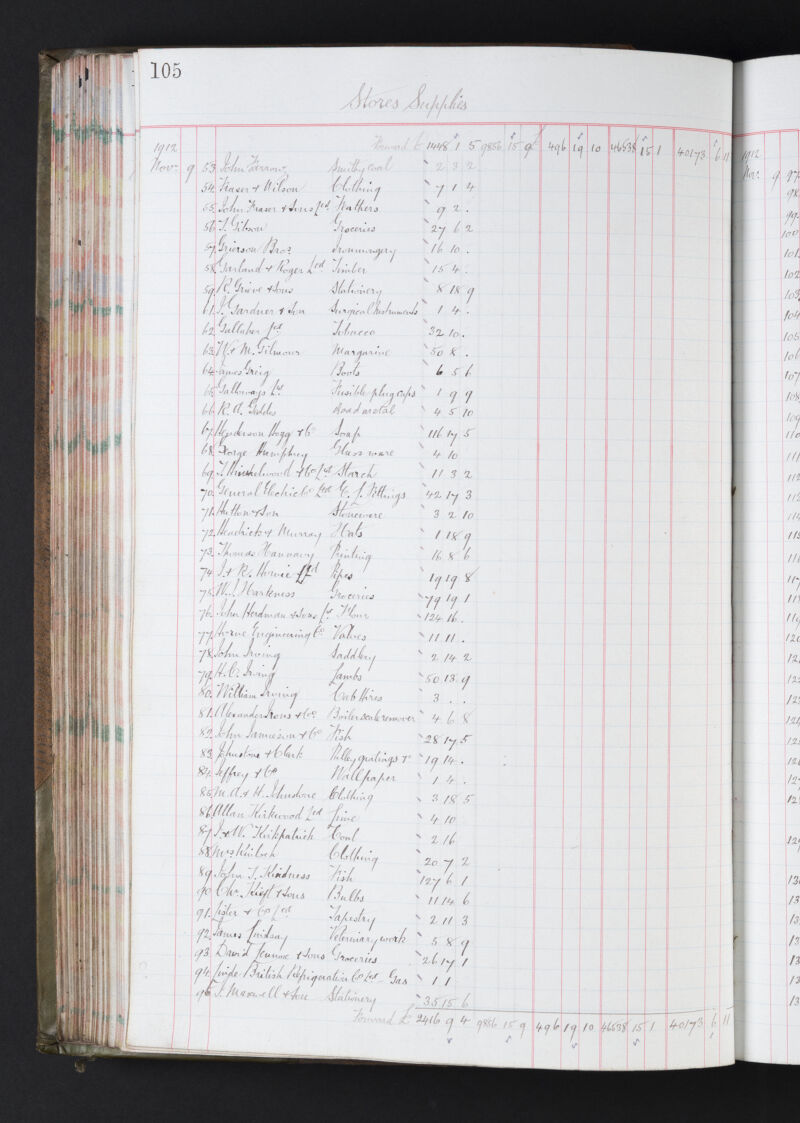 105
Stores Supplies
1912 Forward £ 1448 1 5 9856 15 9 496 19 10 46538 15 1 40173 6 11 1912
Nov. 9 53 John Farrow Smithy coal 2 3 2
54 Fraser & Wilson Clothing 7 1 4
55 John Fraser & Sons Ltd 9 2 .
56 J. Gibson Groceries 27 6 2
57 Grierson Bros Ironmongery 16 10 .
58 Garland & Roger Ltd Timber 15 4 .
59 R. Grieve & Sons Stationery 8 18 9
61 J. Gardner & Son Surgical Instruments 1 4 .
62 Gallaher Ltd Tobacco 32 10 .
63 W. & M. Gilmour Margarine 50 8 .
64 James Greig Boots 6 5 6
65 Galloways Ltd Fusible plug caps 1 9 9
66 R. A. Geddes Road metal 4 5 10
67 Henderson Hogg & Co Soap 116 17 5
68 George Humphrey Glass ware 4 10
69 J. Hinshelwood & Co Ltd Starch 11 3 2
70 General Electric Co Ltd E. L. Fittings 42 17 3
71 Hutton & Son Stoneware 3 2 10
72 Hendricks & Murray Hats 1 18 9
73 Thomas Hannavy Printing 16 8 6
74 J. & R. Howie Ltd Pipes 19 19 8
75 W. J. Harkness Groceries 79 19 1
76 John Herdman & Sons Ltd Flour 124 16 .
77 Engineering Co Valves 11 11 .
78 John Irving Saddlery 2 14 2
79 H. C. Irving Lambs 50 13 9
80 William Irving Cab Hires 3 . .
81 Alexander Irons & Co Boiler scale remover 4 6 8
82 John Jamieson & Co Fish 28 17 5
83 Johnstone & Clark 19 14 .
84 Jeffrey & Co Wallpaper 1 4 .
85 M. A. & H. Johnstone Clothing 3 18 5
86 Allan Kirkwood Ltd Lime 4 10
87 J. & W. Kirkpatrick Coal 2 16
88 Clothing 20 7 2
89 John T. Kindness Fish 127 6 1
90 Chr. Kieft & Sons Bulbs 11 14 6
91 Lister & Co Ltd Tapestry 2 11 3
92 James Lindsay Veterinary work 5 8 9
93 David Lennox & Sons Groceries 26 17 1
94 Linde British Refrigeration Co Ltd Gas 1 1
96 J. Maxwell & Son Stationery 35 15 6
Forward £ 2416 9 4 9856 15 9 496 19 10 46538 15 1 40173 6 11
Nov. 9
100
101
102
103
104
105